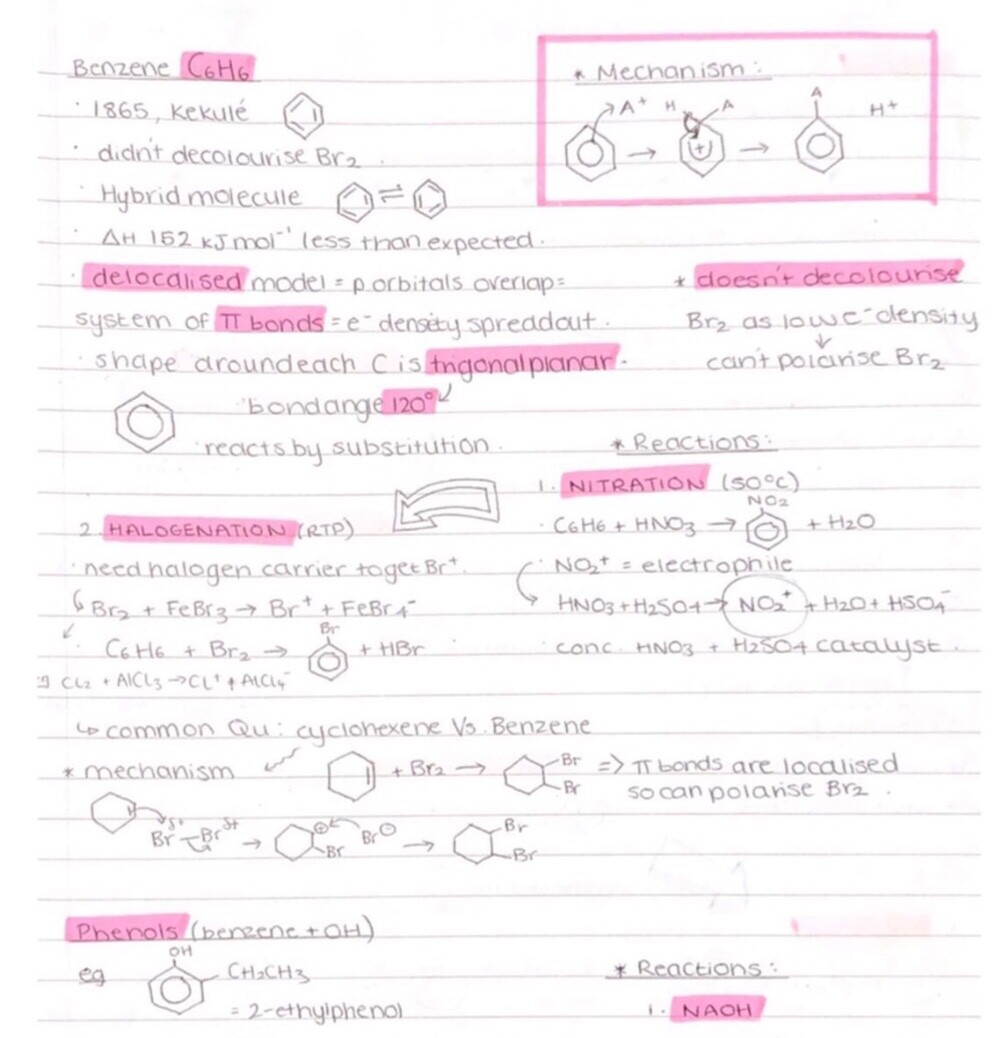 Benzene C6H6
· 1865, Kekulé
· didn't decolourise Br2.
· Hybrid molecule ⇌
· ΔH 152 kJ mol⁻¹ less than expected.
* Mechanism:
A⁺ → H A + → A H⁺
· delocalised model = p orbitals overlap =
system of π bonds = e⁻ density spread out.
· shape around each C is trigonal planar.
· bond ange 120°
· reacts by substitution.
* doesn't decolourise
Br2 as low e⁻ density
↓
can't polarise Br2
* Reactions:
1. NITRATION (50°C)
NO2
· C6H6 + HNO3 → + H2O
· NO2⁺ = electrophile
HNO3 + H2SO4 → NO2⁺ + H2O + HSO4⁻
· conc. HNO3 + H2SO4 catalyst.
2. HALOGENATION (RTP)
· need halogen carrier to get Br⁺.
Br2 + FeBr3 → Br⁺ + FeBr4⁻
Br
· C6H6 + Br2 → + HBr
Cl2 + AlCl3 → Cl⁺ + AlCl4⁻
↳ common Qu: cyclohexene Vs. Benzene
* mechanism
+ Br2 → Br Br => π bonds are localised
so can polarise Br2.
Br – Br δ+ → ⊕ Br Br⊖ → Br Br
Phenols (benzene + OH)
eg OH CH2CH3
= 2-ethylphenol
* Reactions:
1. NAOH